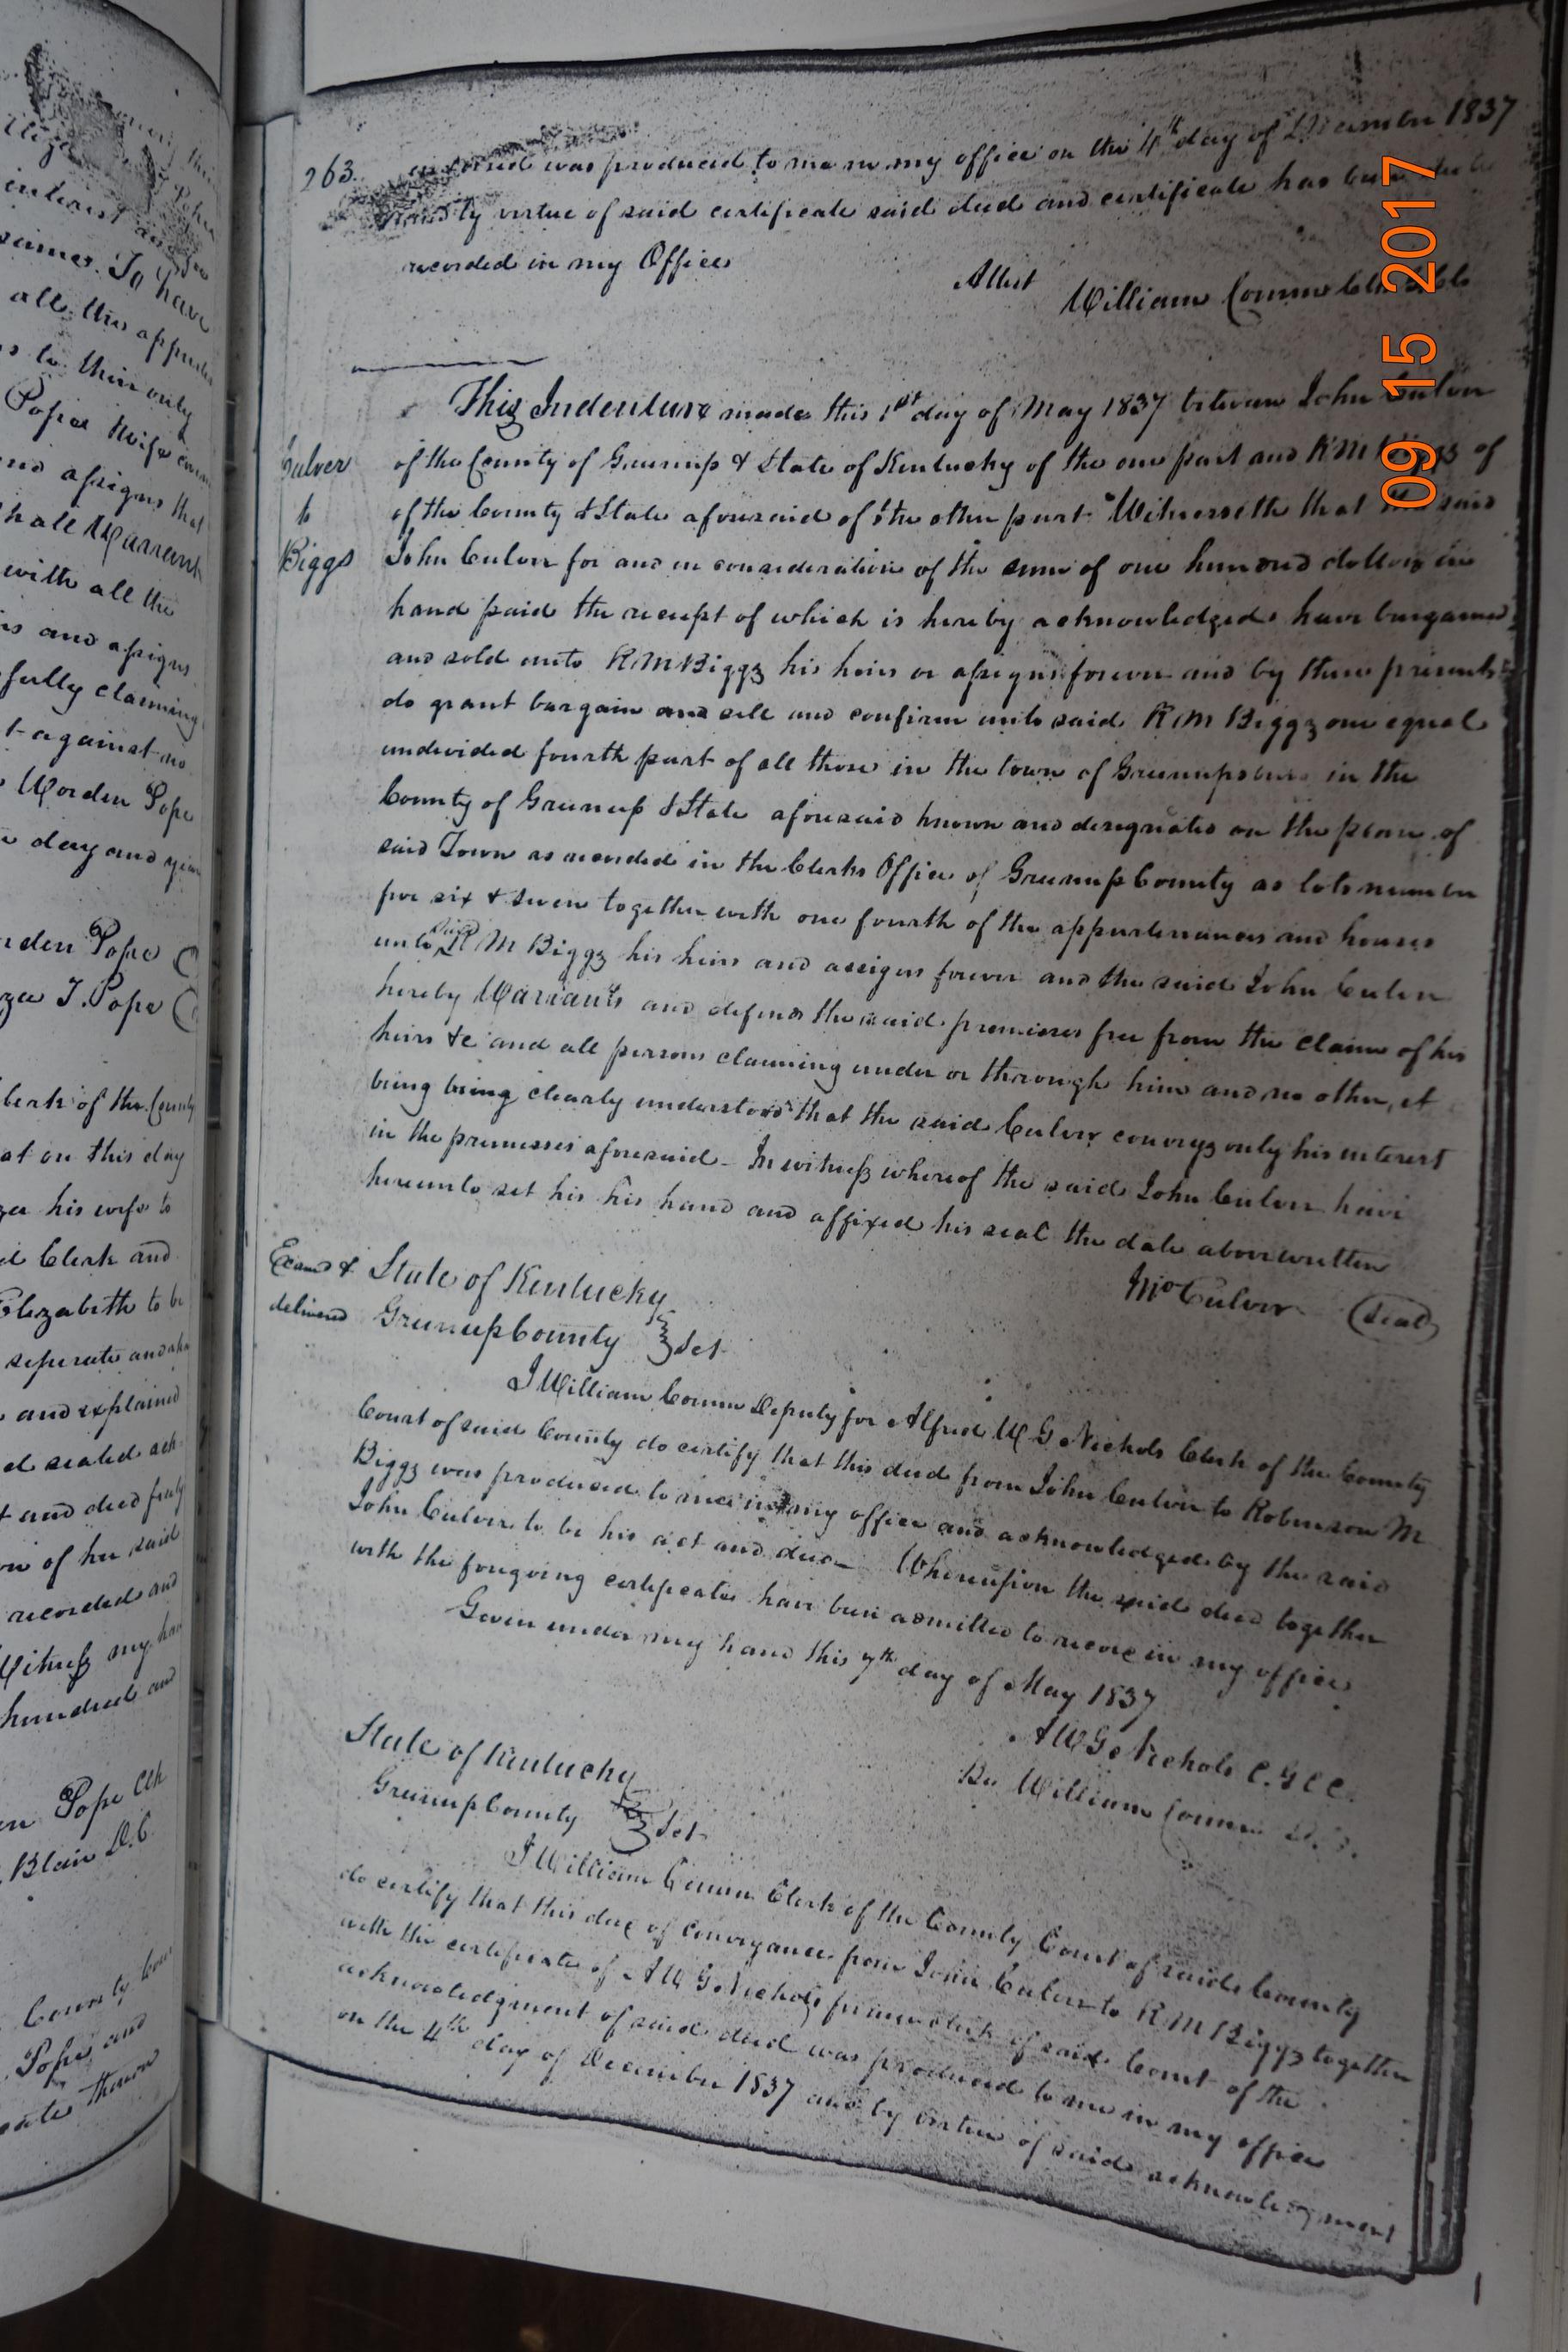 263.
was produced to me in my office on the 4th day of December 1837
by virtue of said certificate said deed and certificate has been
recorded in my Office
Attest
William Conner
This Indenture made this 1st day of May 1837 between John Culver
Culver
to
Biggs
of the County of Greenup & State of Kentucky of the one part and R M Biggs of
of the County & State aforesaid of the other part Witnesseth that the said
John Culver for and in consideration of the sum of one hundred dollars in
hand paid the receipt of which is hereby acknowledged have bargained
and sold unto R M Biggs his heirs or assigns forever and by these presents
do grant bargain and sell and confirm unto said R M Biggs one equal
undivided fourth part of all those in the town of Greenupsburg in the
County of Greenup & State aforesaid known and designated on the plan of
said Town as recorded in the Clerks Office of Greenup County as lots number
six & seven together with one fourth of the appurtenances and houses
unto said R M Biggs his heirs and assigns forever and the said John Culver
hereby Warrants and defends the said premises free from the claim of his
heirs &c and all persons claiming under or through him and no other, it
being being clearly understood that the said Culver conveys only his interest
in the premises aforesaid - In witness whereof the said John Culver have
hereunto set his his hand and affixed his seal the date above written
Jno Culver (Seal)
Examd &
delivered
State of Kentucky
Greenup County Sct
I William Conner Deputy for Alfred W G Nichols Clerk of the County
Court of said County do certify that this deed from John Culver to Robinson M
Biggs was produced to me in my office and acknowledged by the said
John Culver to be his act and deed - Whereupon the said deed together
with the foregoing certificate have been admitted to record in my office
Given under my hand this 7th day of May 1837
A W G Nichols C. G C C.
By William Conner D. C.
State of Kentucky
Greenup County Sct
I William Conner Clerk of the County Court of said County
do certify that this deed of conveyance from John Culver to R M Biggs together
with the certificate of A W G Nichols former clerk of said Court of the
acknowledgment of said deed was produced to me in my office
on the 4th day of December 1837 and by virtue of said acknowledgment
09 15 2017
interest and
same. To have
all the
to their only
Pope & wife
and assigns that
shall Warrant
with all the
and assigns
fully claiming
against
Worden Pope
day and year
Pope
J. Pope
Clerk of the County
at on this day
his wife to
Clerk and
Elizabeth to be
seperate and
and explained
sealed ack
and deed freely
of her said
recorded and
Witness my hand
hundred and
Pope Clk
Blain D.C.
County
Pope and
thereon